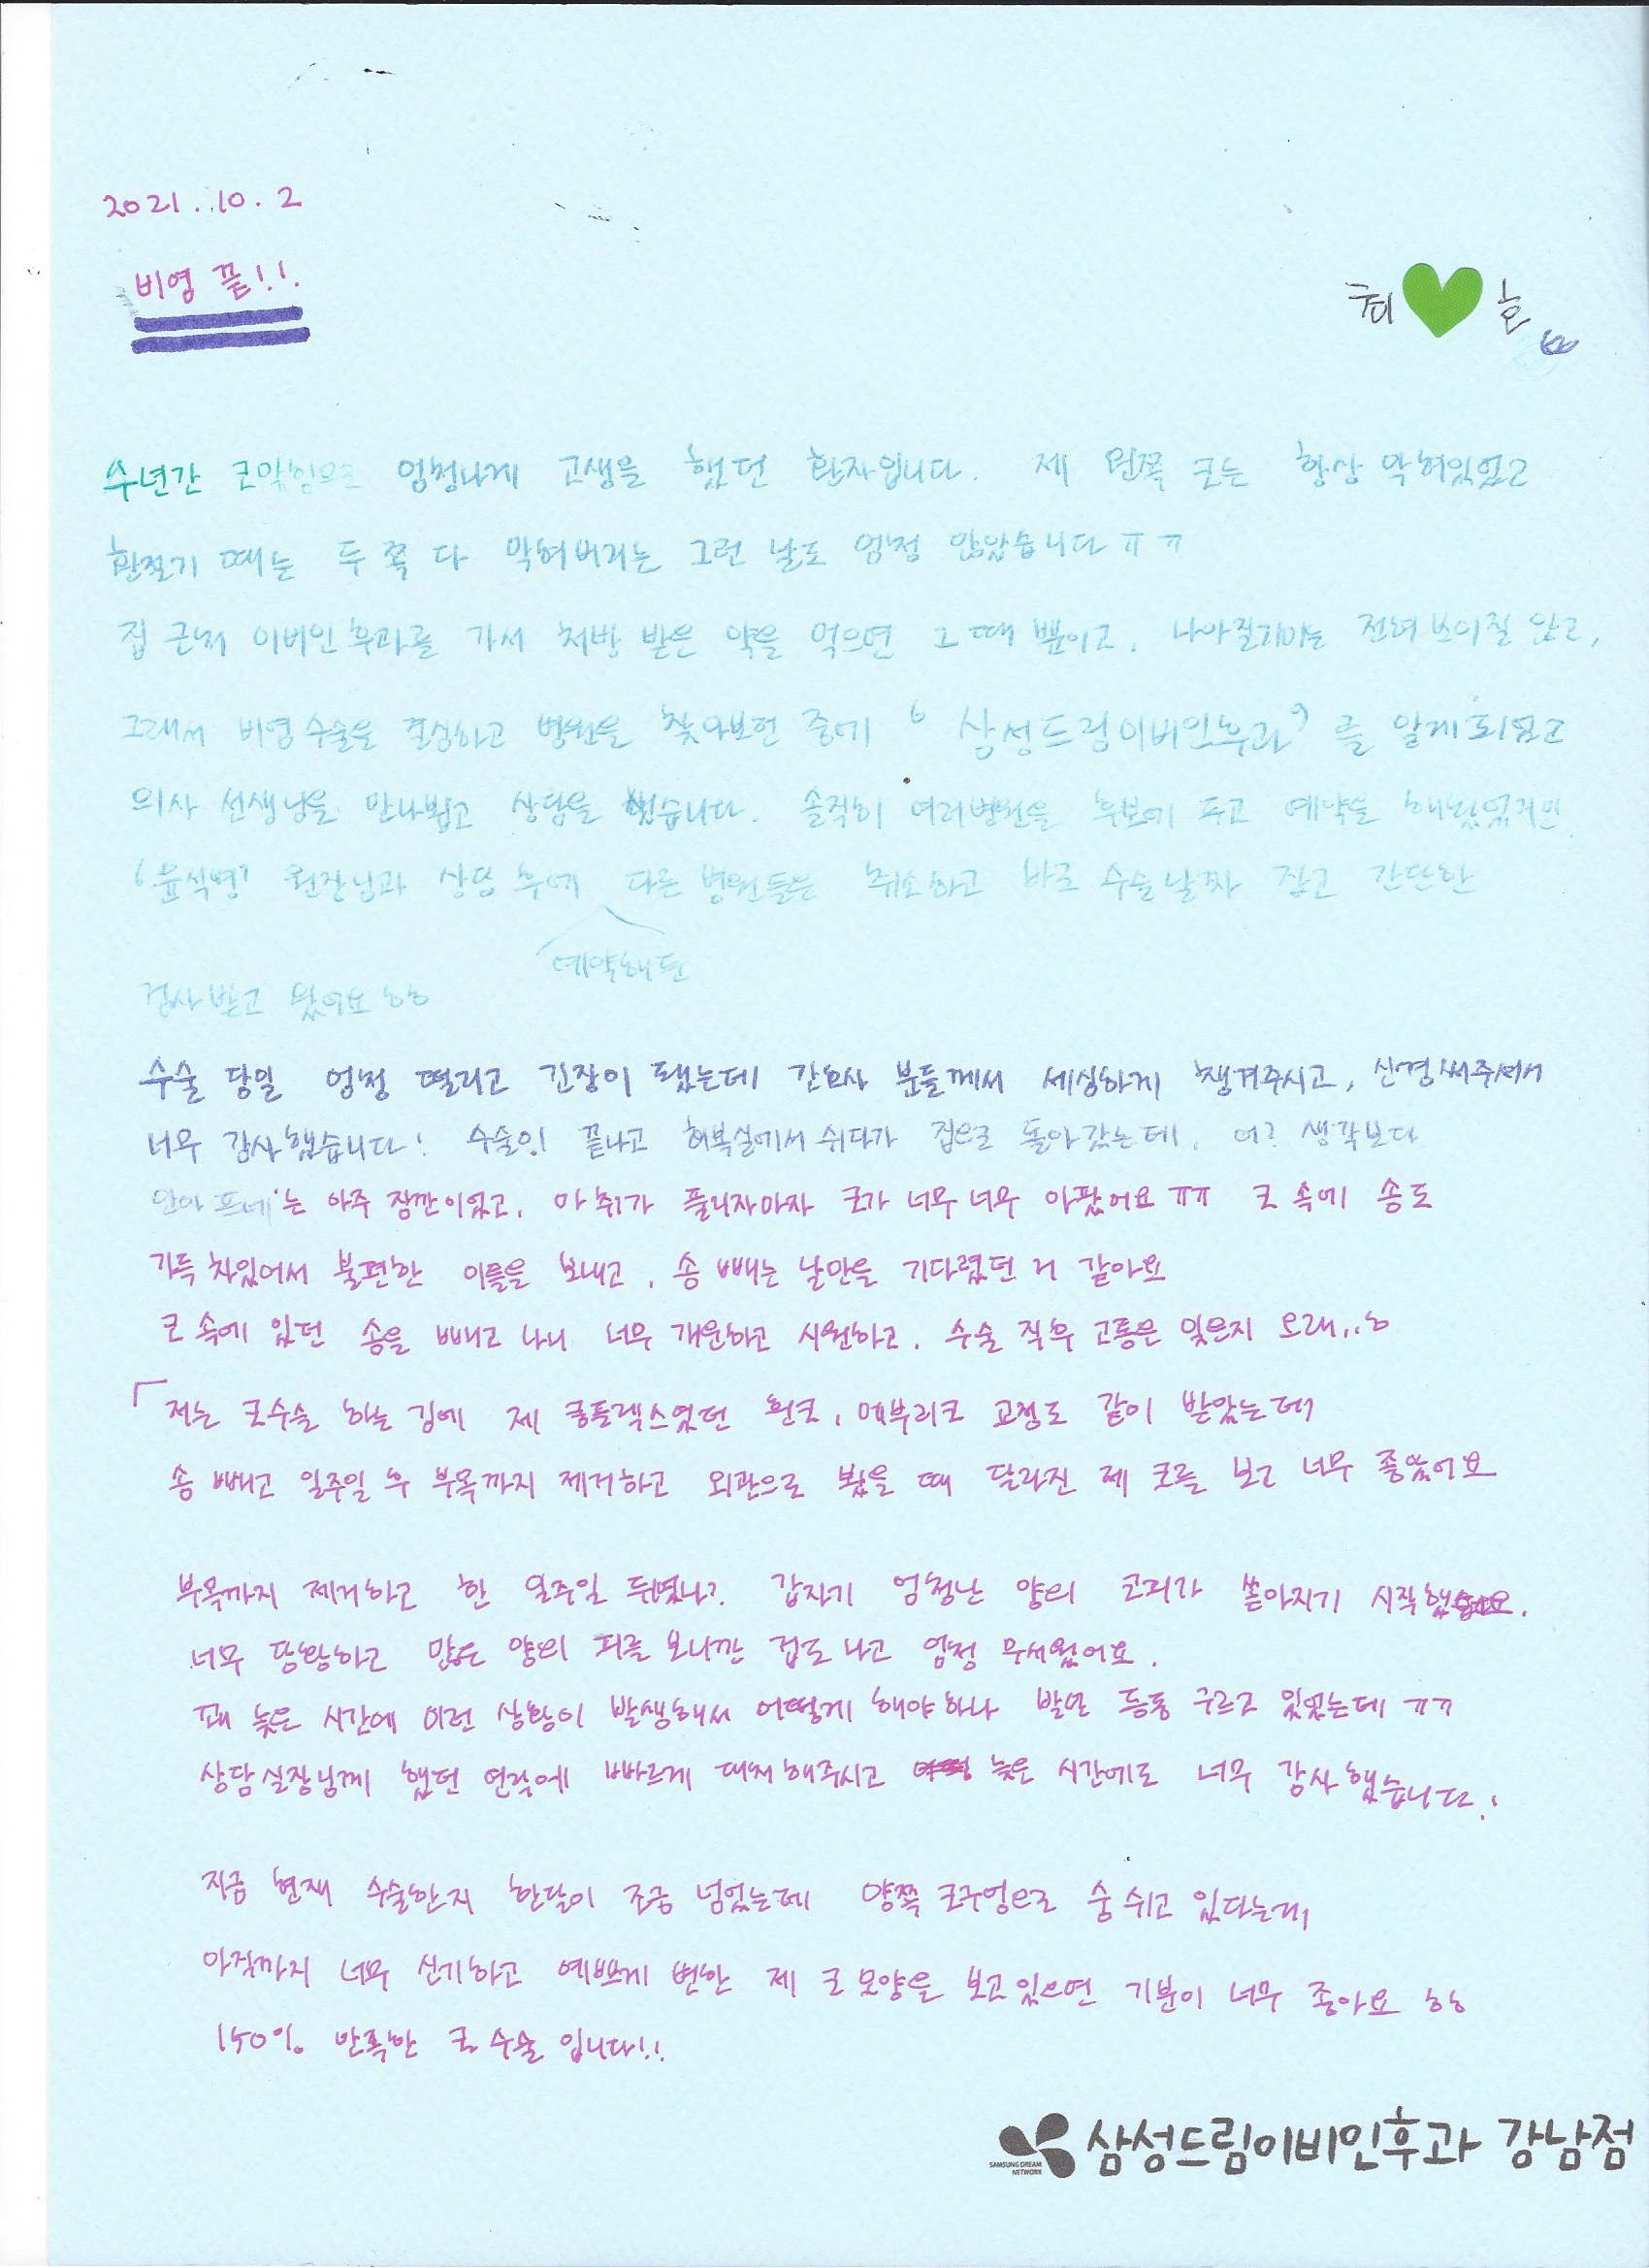 2021. 10. 2
비염 끝!!
최 호
수년간 코막힘으로 엄청나게 고생을 했던 환자입니다. 제 왼쪽 코는 항상 막혀있었고
환절기 때는 두 쪽 다 막혀버리는 그런 날도 엄청 많았습니다ㅠㅠ
집 근처 이비인후과를 가서 처방 받은 약을 먹으면 그 때 뿐이고, 나아질기미는 전혀 보이질 않고,
그래서 비염수술을 결심하고 병원을 찾아보던 중에 '삼성드림이비인후과'를 알게되었고
의사 선생님을 만나뵙고 상담을 했습니다. 솔직히 여러병원을 후보에 두고 예약을 해놨었지만
'윤석명' 원장님과 상담 후에 다른 병원들은 취소하고 바로 수술날짜 잡고 간단한
예약해둔
검사받고 왔어요ㅎㅎ
수술 당일 엄청 떨리고 긴장이 됐는데 간호사 분들께서 세심하게 챙겨주시고, 신경써주셔서
너무 감사했습니다! 수술이 끝나고 회복실에서 쉬다가 집으로 돌아갔는데, 어? 생각보다
안아프네'는 아주 잠깐이었고, 마취가 풀리자마자 코가 너무너무 아팠어요ㅠㅠ 코 속에 솜도
가득 차있어서 불편한 이틀을 보내고, 솜 빼는 날만을 기다렸던 거 같아요
코 속에 있던 솜을 빼고 나니 너무 개운하고 시원하고, 수술 직후 고통은 잊은지 오래..ㅎ
「저는 코수술 하는 김에 제 콤플렉스였던 휜코, 매부리코 교정도 같이 받았는데
솜 빼고 일주일 후 부목까지 제거하고 외관으로 봤을 때 달라진 제 코를 보고 너무 좋았어요
부목까지 제거하고 한 일주일 뒤였나? 갑자기 엄청난 양의 코피가 쏟아지기 시작했
너무 당황하고 많은 양의 피를 보니깐 겁도 나고 엄청 무서웠어요.
꽤 늦은 시간에 이런 상황이 발생해서 어떻게 해야하나 발만 동동 구르고 있었는데ㅠㅠ
상담실장님께 했던 연락에 빠르게 대처해주시고 늦은 시간에도 너무 감사했습니다!
지금 현재 수술한지 한달이 조금 넘었는데 양쪽 코구멍으로 숨 쉬고 있다는게,
아직까지 너무 신기하고 예쁘게 변한 제 코 모양을 보고있으면 기분이 너무 좋아요 ㅎㅎ
150% 만족한 코 수술 입니다!!
SAMSUNG DREAM NETWORK 삼성드림이비인후과 강남점